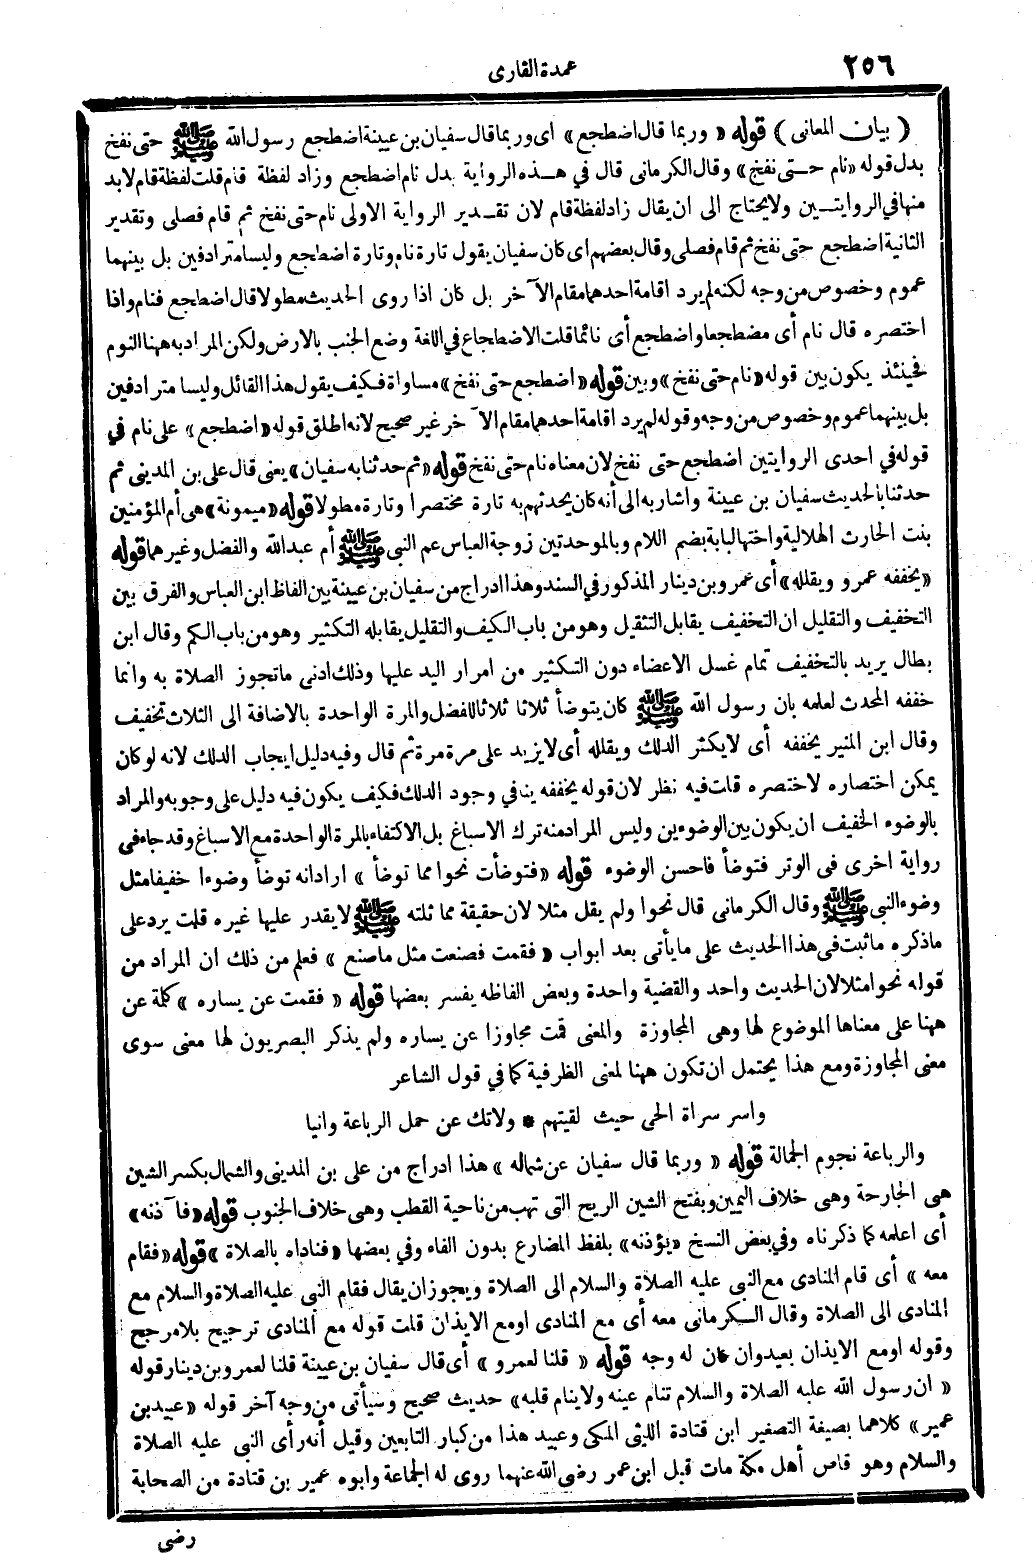 ٢٥٦
عمدة القارى
( بيان المعانى ) قوله « وربما قال اضطجع » أى وربما قال سفيان بن عيينة اضطجع رسول الله ﷺ حتى نفخ
بدل قوله «نام حتى نفخ» وقال الكرمانى قال في هذه الرواية بدل نام اضطجع وزاد لفظة قام قلت لفظة قام لابد
منها في الروايتين ولا يحتاج الى ان يقال زاد لفظة قام لان تقدير الرواية الاولى نام حتى نفخ ثم قام فصلى وتقدير
الثانية اضطجع حتى نفخ ثم قام فصلى وقال بعضهم اى كان سفيان يقول تارة نام وتارة اضطجع وليسا مترادفين بل بينهما
عموم وخصوص من وجه لكنه لم يرد اقامة احدهما مقام الآخر بل كان اذا روى الحديث مطولا قال اضطجع فنام واذا
اختصره قال نام أى مضطجعا واضطجع أى نائما قلت الاضطجاع في اللغة وضع الجنب بالارض ولكن المراد به ههنا النوم
فحينئذ يكون بين قوله «نام حتى نفخ» وبين قوله «اضطجع حتى نفخ» مساواة فكيف يقول هذا القائل وليسا مترادفين
بل بينهما عموم وخصوص من وجه وقوله لم يرد اقامة احدهما مقام الآخر غير صحيح لانه اطلق قوله «اضطجع» على نام في
قوله في احدى الروايتين اضطجع حتى نفخ لان معناه نام حتى نفخ قوله «ثم حدثنا به سفيان» يعنى قال على بن المدينى ثم
حدثنا بالحديث سفيان بن عيينة واشار به الى أنه كان يحدثهم به تارة مختصرا وتارة مطولا قوله «ميمونة» هى أم المؤمنين
بنت الحارث الهلالية واختها لبابة بضم اللام وبالموحدتين زوجة العباس عم النبى ﷺ أم عبد الله والفضل وغيرهما قوله
«يخففه عمرو ويقلله» أى عمرو بن دينار المذكور في السند وهذا ادراج من سفيان بن عيينة بين الفاظ ابن العباس والفرق بين
التخفيف والتقليل ان التخفيف يقابل التثقيل وهو من باب الكيف والتقليل يقابله التكثير وهو من باب الكم وقال ابن
بطال يريد بالتخفيف تمام غسل الاعضاء دون التكثير من امرار اليد عليها وذلك ادنى ما تجوز الصلاة به وانما
خففه المحدث لعلمه بان رسول الله ﷺ كان يتوضأ ثلاثا ثلاثا للفضل والمرة الواحدة بالاضافة الى الثلاث تخفيف
وقال ابن المنير يخففه أى لا يكثر الدلك ويقلله أى لا يزيد على مرة مرة ثم قال وفيه دليل ايجاب الدلك لانه لو كان
يمكن اختصاره لاختصره قلت فيه نظر لان قوله يخففه ينافي وجود الدلك فكيف يكون فيه دليل على وجوبه والمراد
بالوضوء الخفيف ان يكون بين الوضوءين وليس المراد منه ترك الاسباغ بل الاكتفاء بالمرة الواحدة مع الاسباغ وقد جاء في
رواية اخرى فى الوتر فتوضأ فاحسن الوضوء قوله «فتوضأت نحوا مما توضأ» اراد انه توضأ وضوءا خفيفا مثل
وضوء النبى ﷺ وقال الكرمانى قال نحوا ولم يقل مثلا لان حقيقة مماثلته ﷺ لا يقدر عليها غيره قلت يرد على
ما ذكره ما ثبت فى هذا الحديث على ما يأتى بعد ابواب « فقمت فصنعت مثل ما صنع » فعلم من ذلك ان المراد من
قوله نحوا مثلا لان الحديث واحد والقضية واحدة وبعض الفاظه يفسر بعضها قوله « فقمت عن يساره » كلمة عن
ههنا على معناها الموضوع لها وهى المجاوزة والمعنى قمت مجاوزا عن يساره ولم يذكر البصريون لها معنى سوى
معنى المجاوزة ومع هذا يحتمل ان تكون ههنا لمعنى الظرفية كما في قول الشاعر
واسر سراة الحى حيث لقيتهم * ولاتك عن حمل الرباعة وانيا
والرباعة نجوم الحمالة قوله « وربما قال سفيان عن شماله » هذا ادراج من على بن المدينى والشمال بكسر الشين
هى الجارحة وهى خلاف اليمين وبفتح الشين الريح التى تهب من ناحية القطب وهى خلاف الجنوب قوله «فآذنه»
أى اعلمه كما ذكرناه وفي بعض النسخ «يؤذنه» بلفظ المضارع بدون الفاء وفي بعضها «فناداه بالصلاة» قوله «فقام
معه » أى قام المنادى مع النبى عليه الصلاة والسلام الى الصلاة ويجوز ان يقال فقام النبى عليه الصلاة والسلام مع
المنادى الى الصلاة وقال الكرمانى معه أى مع المنادى او مع الايذان قلت قوله مع المنادى ترجيح بلا مرجح
وقوله او مع الايذان بعيد وان كان له وجه قوله « قلنا لعمرو » أى قال سفيان بن عيينة قلنا لعمرو بن دينار قوله
« ان رسول الله عليه الصلاة والسلام تنام عينه ولا ينام قلبه» حديث صحيح وسيأتى من وجه آخر قوله «عبيد بن
عمير» كلاهما بصيغة التصغير ابن قتادة الليثى المكى وعبيد هذا من كبار التابعين وقيل أنه رأى النبى عليه الصلاة
والسلام وهو قاص أهل مكة مات قبل ابن عمر رضى الله عنهما روى له الجماعة وابوه عمير بن قتادة من الصحابة
رضى